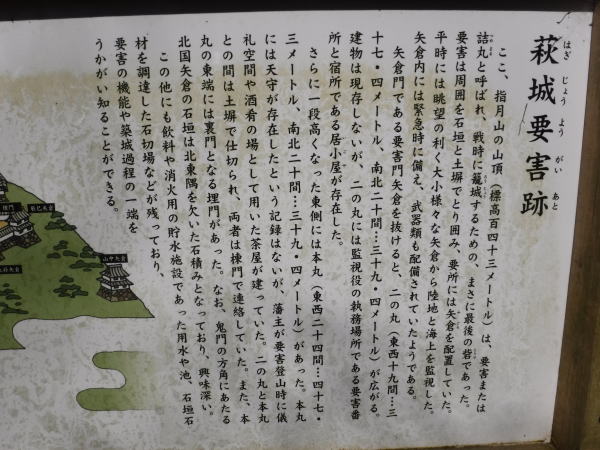 萩城要害跡
はぎじょうようがいあと
ここ、指月山の山頂（標高百四十三メートル）は、要害または
詰丸と呼ばれ、戦時に籠城するための、まさに最後の砦であった。
要害は周囲を石垣と土塀でとり囲み、要所には矢倉を配置していた。
平時には眺望の利く大小様々な矢倉から陸地と海上を監視した。
矢倉内には緊急時に備え、武器類も配備されていたようである。
矢倉門である要害門矢倉を抜けると、二の丸（東西十九間…三
十七・四メートル、南北二十間…三十九・四メートル）が広がる。
建物は現存しないが、二の丸には監視役の執務場所である要害番
所と宿所である居小屋が存在した。
さらに一段高くなった東側には本丸（東西二十四間…四十七・
三メートル、南北二十間…三十九・四メートル）があった。本丸
には天守が存在したという記録はないが、藩主が要害登山時に儀
礼空間や酒肴の場として用いた茶屋が建っていた。二の丸と本丸
との間は土塀で仕切られ、両者は棟門で連絡していた。また、本
丸の東端には裏門となる埋門があった。なお、鬼門の方角にあたる
北国矢倉の石垣は北東隅を欠いた石積みとなっており、興味深い。
この他にも飲料や消火用の貯水施設であった用水や池、石垣石
材を調達した石切場などが残っており、
要害の機能や築城過程の一端を
うかがい知ることができる。
辰巳矢倉
埋門
山中矢倉